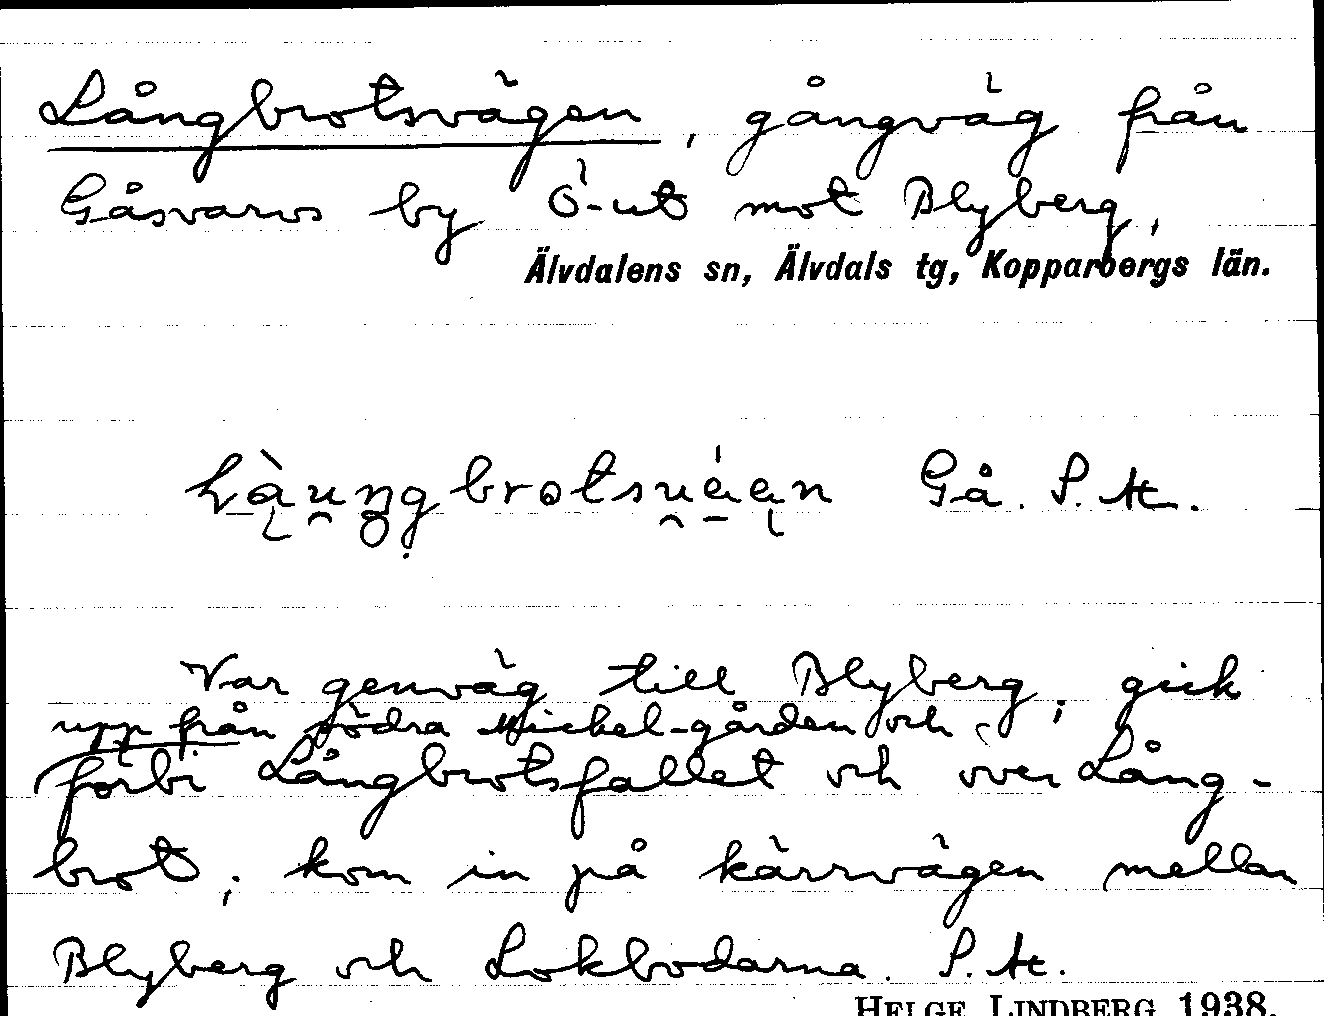 Långbrotsvägen, gångväg från
Gåsvarvs by Ö-ut mot Blyberg,
Älvdalens sn, Älvdals tg, Kopparbergs län.
làungbrotsu̯áan Gå. S. M.
Var genväg till Blyberg; gick
upp från södra Mickel-gården och
förbi Långbrotsfallet och över Lång-
brot; kom in på kärrvägen mellan
Blyberg och Lokbodarna.
HELGE LINDBERG 1938.